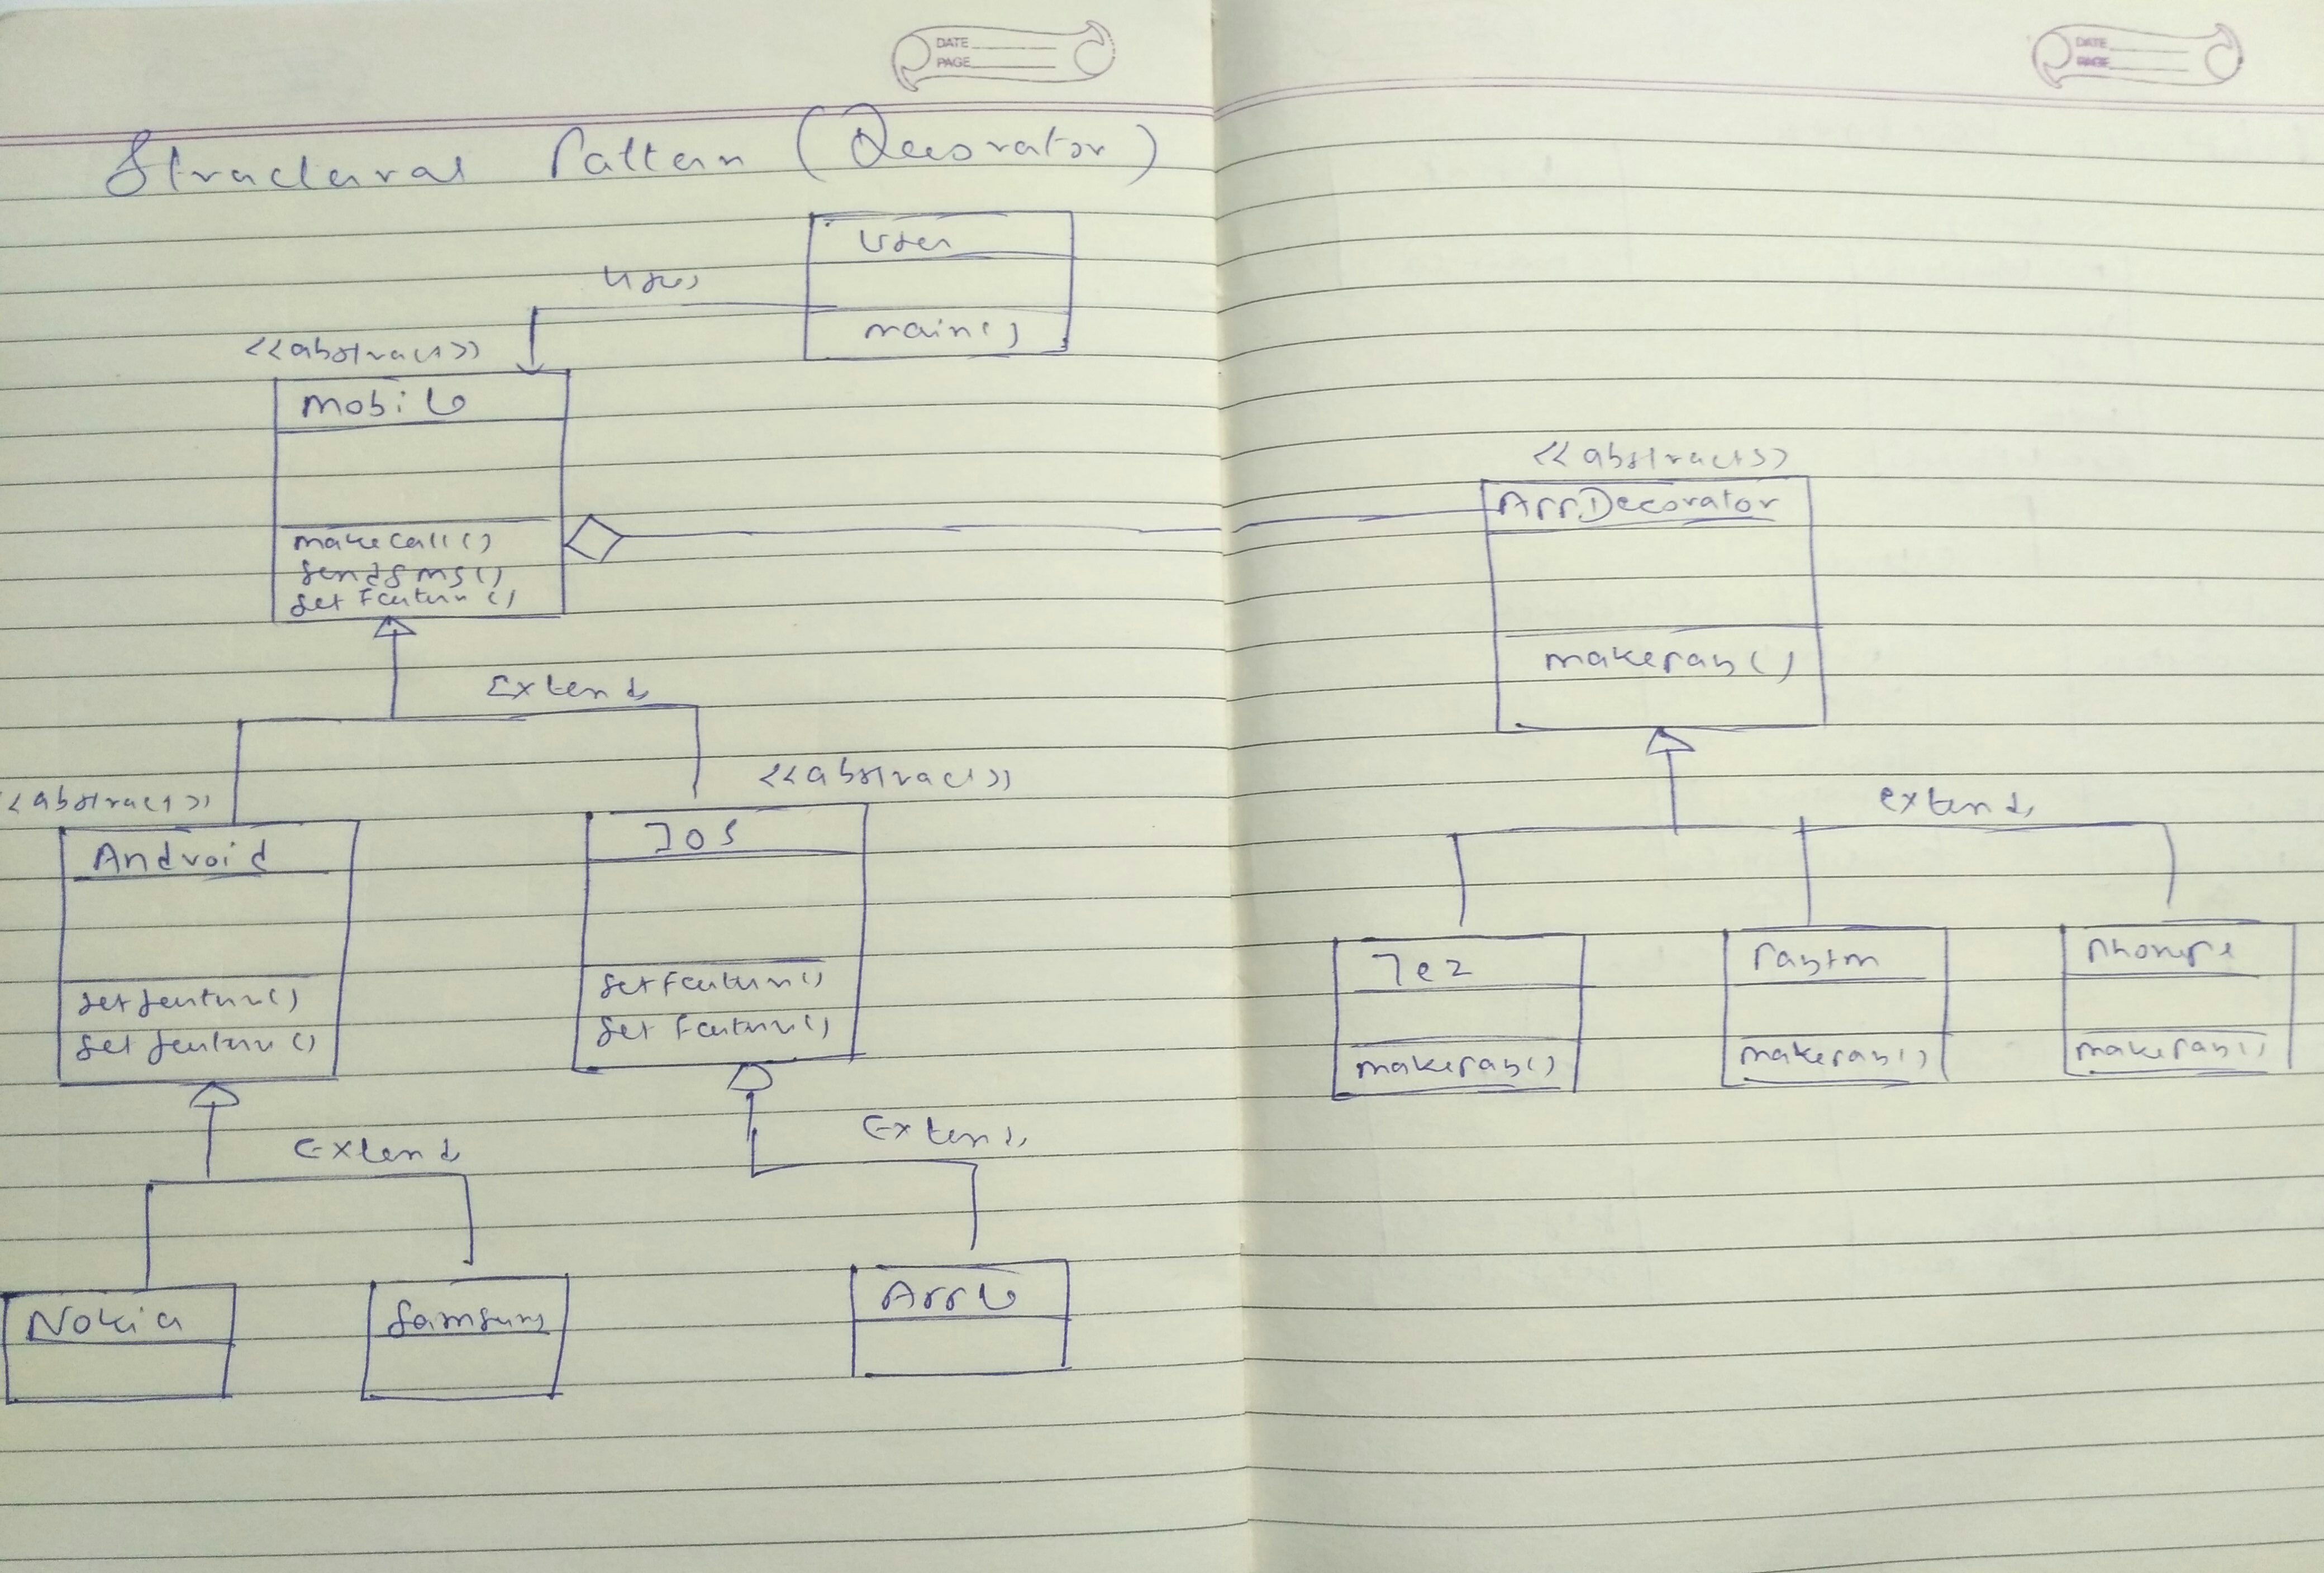 DATE
PAGE
DATE
PAGE
Structural Pattern (Decorator)
User
main()
uses
<<abstract>>
Mobile
makeCall()
sendSms()
getFeature()
Extends
<<abstract>>
Android
getfeature()
setfeature()
<<abstract>>
IOS
getFeature()
setFeature()
Extends
Extends
Nokia
Samsung
Apple
<<abstract>>
AppDecorator
makepay()
extends
Tez
makepay()
Paytm
makepay()
Phonepe
makepay()